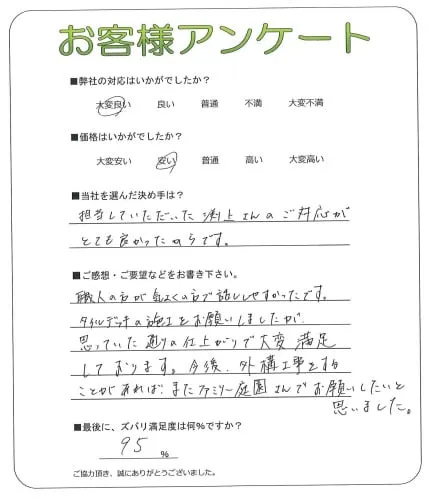 お客様アンケート
■弊社の対応はいかがでしたか?
大変良い 良い 普通 不満 大変不満
■価格はいかがでしたか?
大変安い 安い 普通 高い 大変高い
■当社を選んだ決め手は?
担当していただいた渕上さんのご対応が
とても良かったからです。
■ご感想・ご要望などをお書き下さい。
職人の方が気さくの方で話しやすかったです。
タイルデッキの施工をお願いしましたが、
思っていた通りの仕上がりで大変満足
しております。今後、外構工事をする
ことがあれば、またファミリー庭園さんでお願いしたいと
思いました。
■最後に、ズバリ満足度は何%ですか?
95 %
ご協力頂き、誠にありがとうございました。